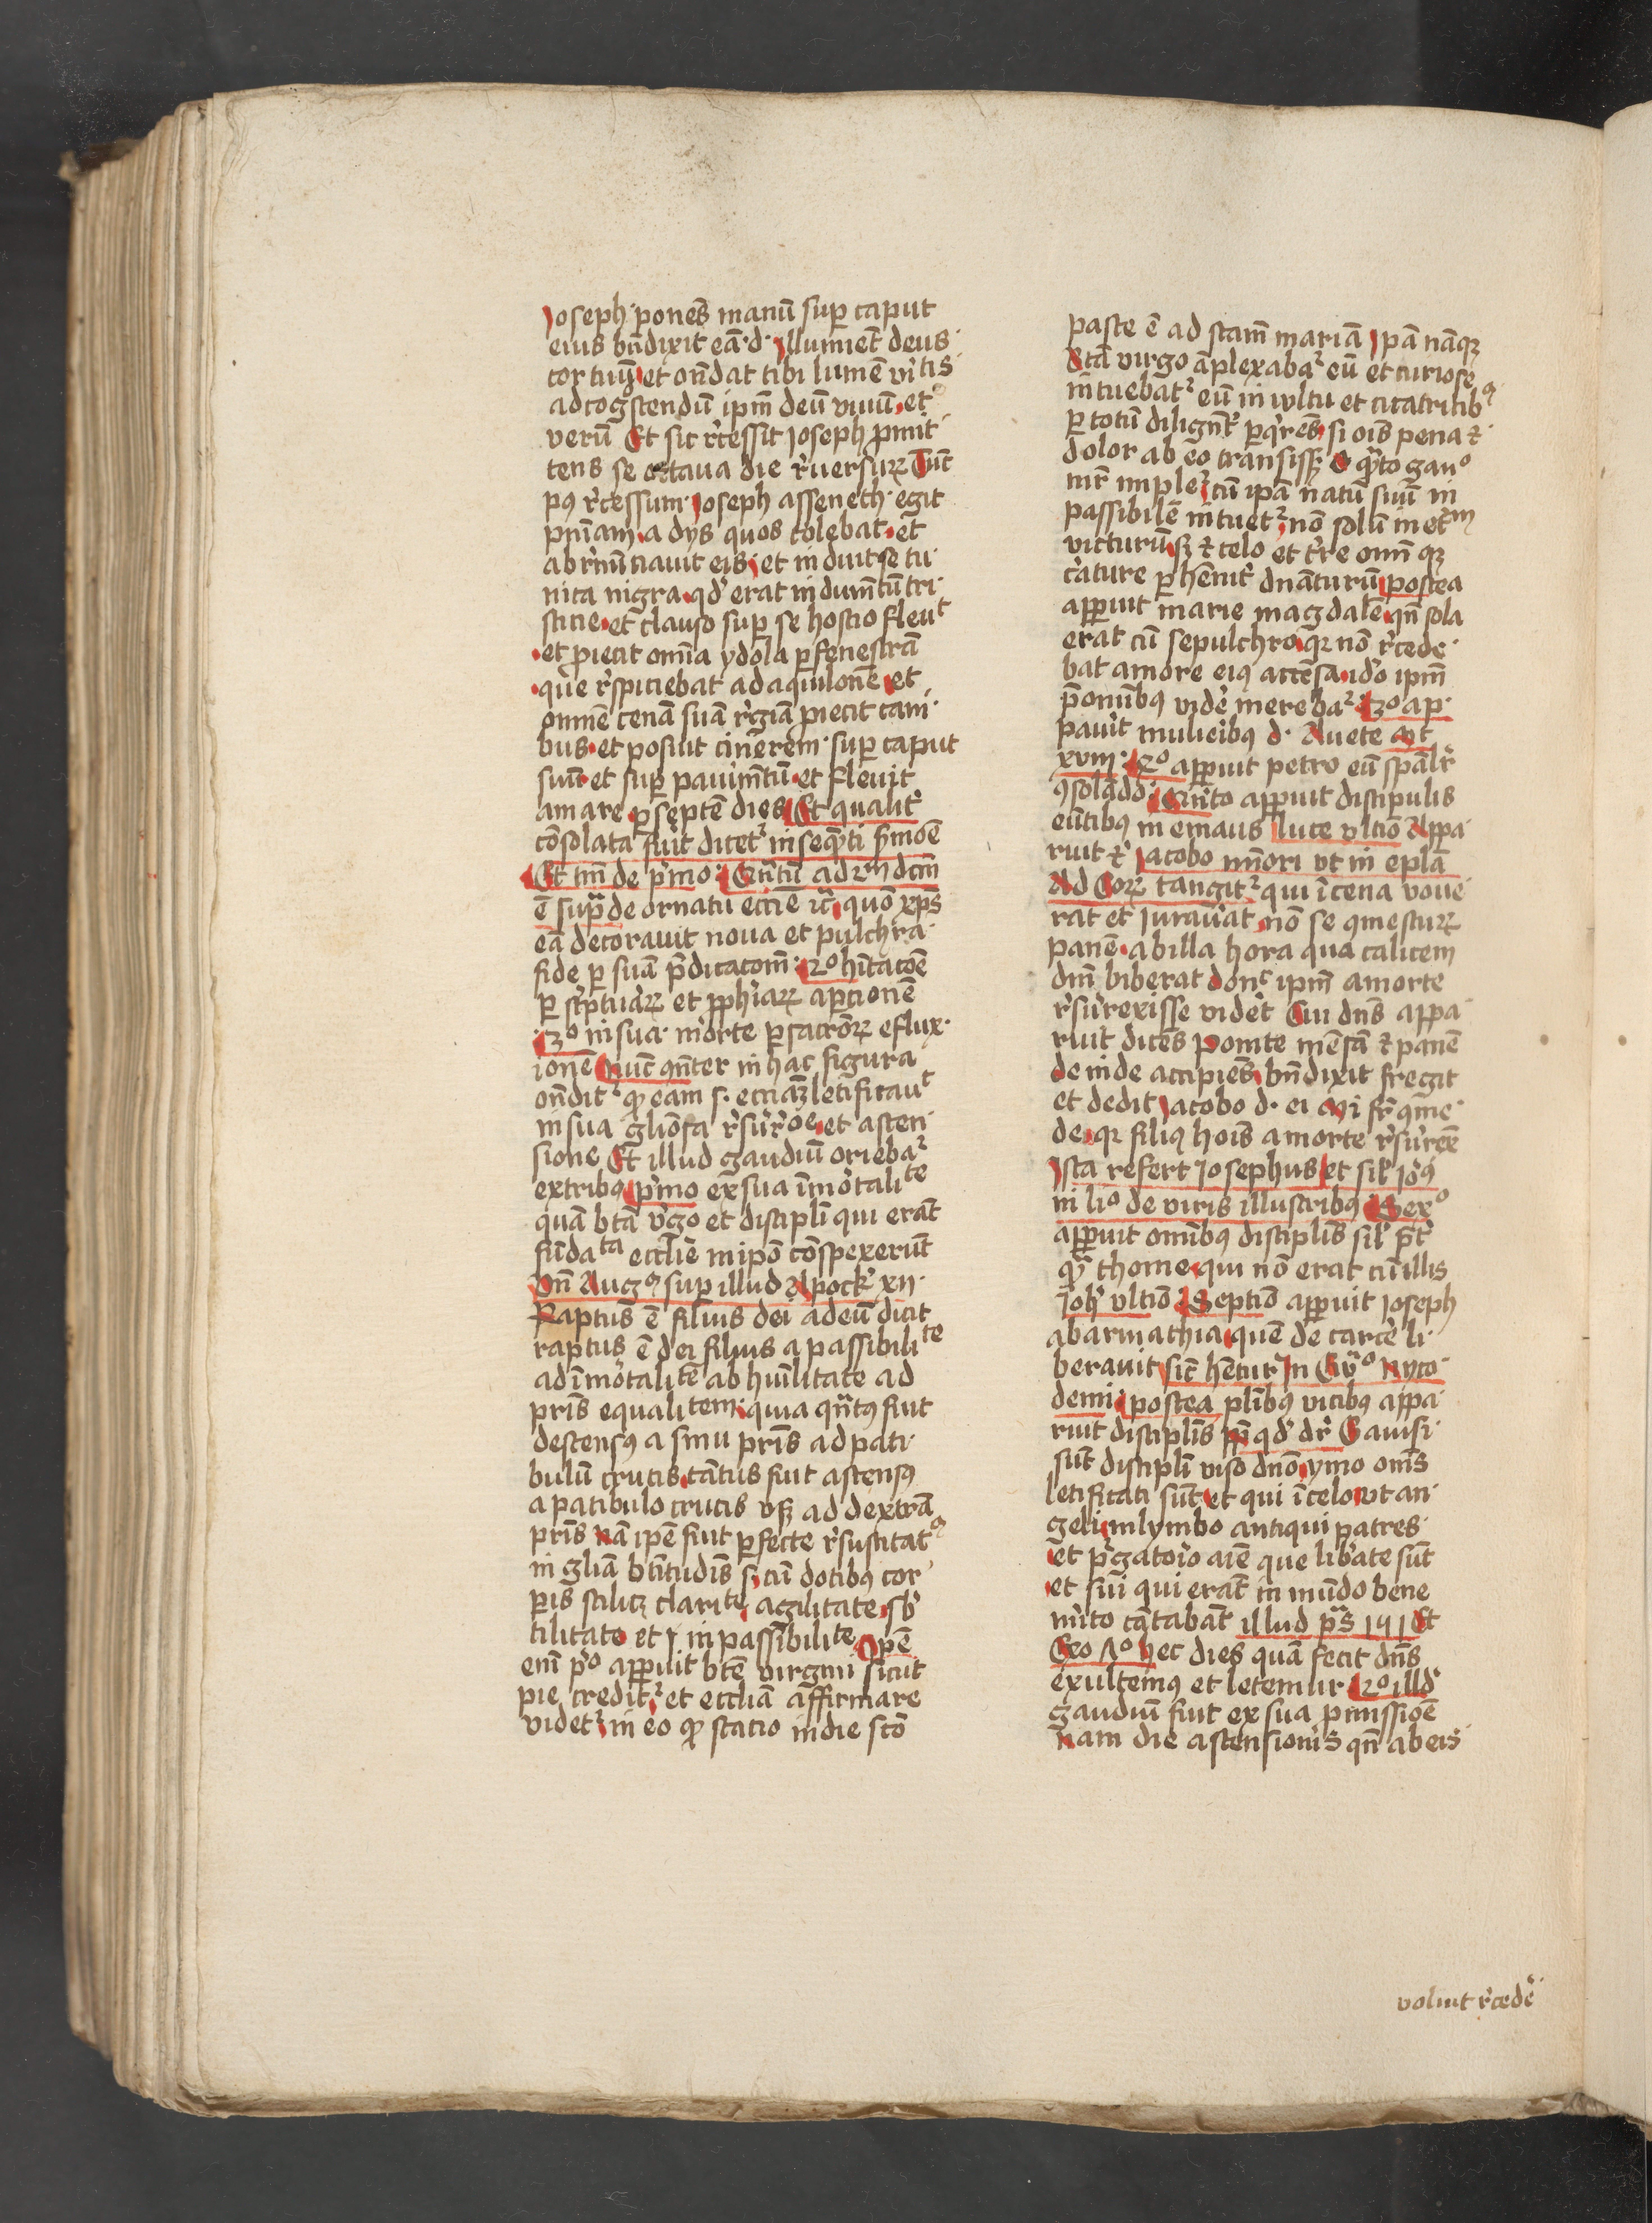 Joseph· ponēs manū sup caput
eius bn̄dixit eā·d· Jllumiēt deus
cor tuū et ōndat tibi lumē v̓itis
ad cogscendū ip̄m deū viuū et
verū Et sic r̓cessit Joseph p̱mit
tens se octaua die r̓uersuꝝ Tūc
pꝰ r̓cessum Joseph asseneth· egit
pn̄iam a dys quos colebat et
abr̓nūciauit eis et induit se tu
nica nigra qd̓ erat indum̄tū tri
sticie et clauso sup se hostio fleuᵗ
et p̱iecit om̄ia ydola ꝑ fenestrā
que r̓spiciebat ad aquilonē et
om̄nē cenā suā r̓giā p̱iecit cani
bus et posuit cinerem sup caput
suū et sup pauim̄tū et fleuit
amare ꝑ septē dies Et qualit̓
cōsolata fuit dicet᷑ in seqn̄ti ẜmōe
Et tm̄ de p̓mo Quātū ad 2m dcm̄
ē supᷓ de ornatu ecc̄ie quō xp̄s
eā decorauit noua et pulchra
fide ꝑ suā p̄dicacoēm 2o
ꝑ sc̓ptuaꝝ et ꝓph̓iaꝝ aꝑcionē
3o in sua morte ꝑ sacrōꝝ eflux
ionē Nūc in hac figura
ōndit ꝙ eam s· ecciaꝫ letificauᵗ
in sua glīosa r̓sur̓cōe et ascen
sione Et illud gaudiū orieba᷑
ex tribꝰ p̓mo ex sua īmortaliᵗᵉ
quā btā v̓go et discipli qui erāt
fūdaᵗᵃ ecclīe in ipō cōspexerūt
Vn̄ Augꝰ sup illud Apoc xij
Raptus ē filius dei ad eū dicit
raptus ē dei filius a passibiliᵗᵉ
ad īmortalitē ab hūilitate ad
pris equalitem quia qn̄tꝰ fuit
descensꝰ a sinu pris ad pati
bulū crucis tātus fuit ascensꝰ
a patibulo crucis vsqꝫ ad dextrā
pris Nā ip̄e fuit ꝑfecte r̓suscitatꝰ
in gliā btītudīs s· cū dotibꝰ cor
ꝑis scilicꝫ clariᵗᵉ agilitate sb̓
tilitate et inpassibiliᵗᵉ Ipē
enī p̓o apꝑuit btē virgini sicut
pie credit᷑ et eccliā affirmare
videt᷑ in eo ꝙ stacio in die scō
pasce ē ad sctam̄ mariā Ipā nāqꝫ
btā virgo āplexaba᷑ eū et curiose
intuebat᷑ eū in vultu et cicatricibꝰ
ꝑ totū diligent̓ ꝑqrēs si oīs pena et
dolor ab eo transissꝫ O qᷓto gauº
mr̄ imple᷑ cū ipā natū suū in
passibilē intuet᷑ nō solū in etᵐ
victurū sꝫ et celo et tr̓re omī qꝫ
c̓ature ꝑhēnit̓ dnāturū postea
apꝑuit marie magdalē qn̄ sola
erat cū sepulchro qꝛ nō r̓cede
bat amore eiꝰ accēsa ido ip̄m
p̄ omībꝰ vider̓ mereba᷑ 3o ap
paruit mulieibꝰ d· Auete Mt
xxviij· 4o apꝑuit petro eū spāl̓r
ꝯsolādo Quīto apꝑuit discipulis
eūtibꝰ in emaus Luce vltīo Appa
ruit et Jacobo minori vt in epla
Ad Coꝝ tangit᷑ qui ī cena voue
rat et iurau̓at nō se ꝯmesturꝝ
panē ab illa hora qua calicem
dnī biberat donᶜ ipm̄ a morte
r̓surexisse vider̓t Cui dns appa
ruit dicēs ponite mēsā et panē
deinde accipiēs bn̄dixit fregit
et dedit Jacobo d· ei Mi fr̄ ꝯme
de qꝛ filiꝰ hoīs a morte r̓surexit
Jsta refert Josephus et sil̓ Jeroꝰ
in liº de viris illustribꝰ Sexº
apꝑuit omībꝰ disciplis sil̓ p̄t̓
qᷓ thome qui nō erat cū illis
Joh̓ vltīo Septīo apꝑuit Joseph
ab armathia quē de carcer̓ li
berauit sic̄ hētur Jn Eūº Nyco
demi postea pl̄ibꝰ vicibꝰ appa
ruit disciplis ꝓp̄ qd̓ dr̄ Gauisi
sūt discipli viso dnō ymo oms̄
letificati sūt et qui ī celo vt an
geli in lymbo antiqui patres
et pr̓gatoīo aīe que lib̓ate sūt
et sui qui erāt in mūdo bene
m̓ito cātabāt illud ps̄ 141 Et
Exo Hec dies quā fecit dns̄
exultemꝰ et letemur 2o illd̓
gaudiū fuit ex sua p̱missiōe
Nam die ascensionis qn̄ ab eis
voluit r̓ceder̓